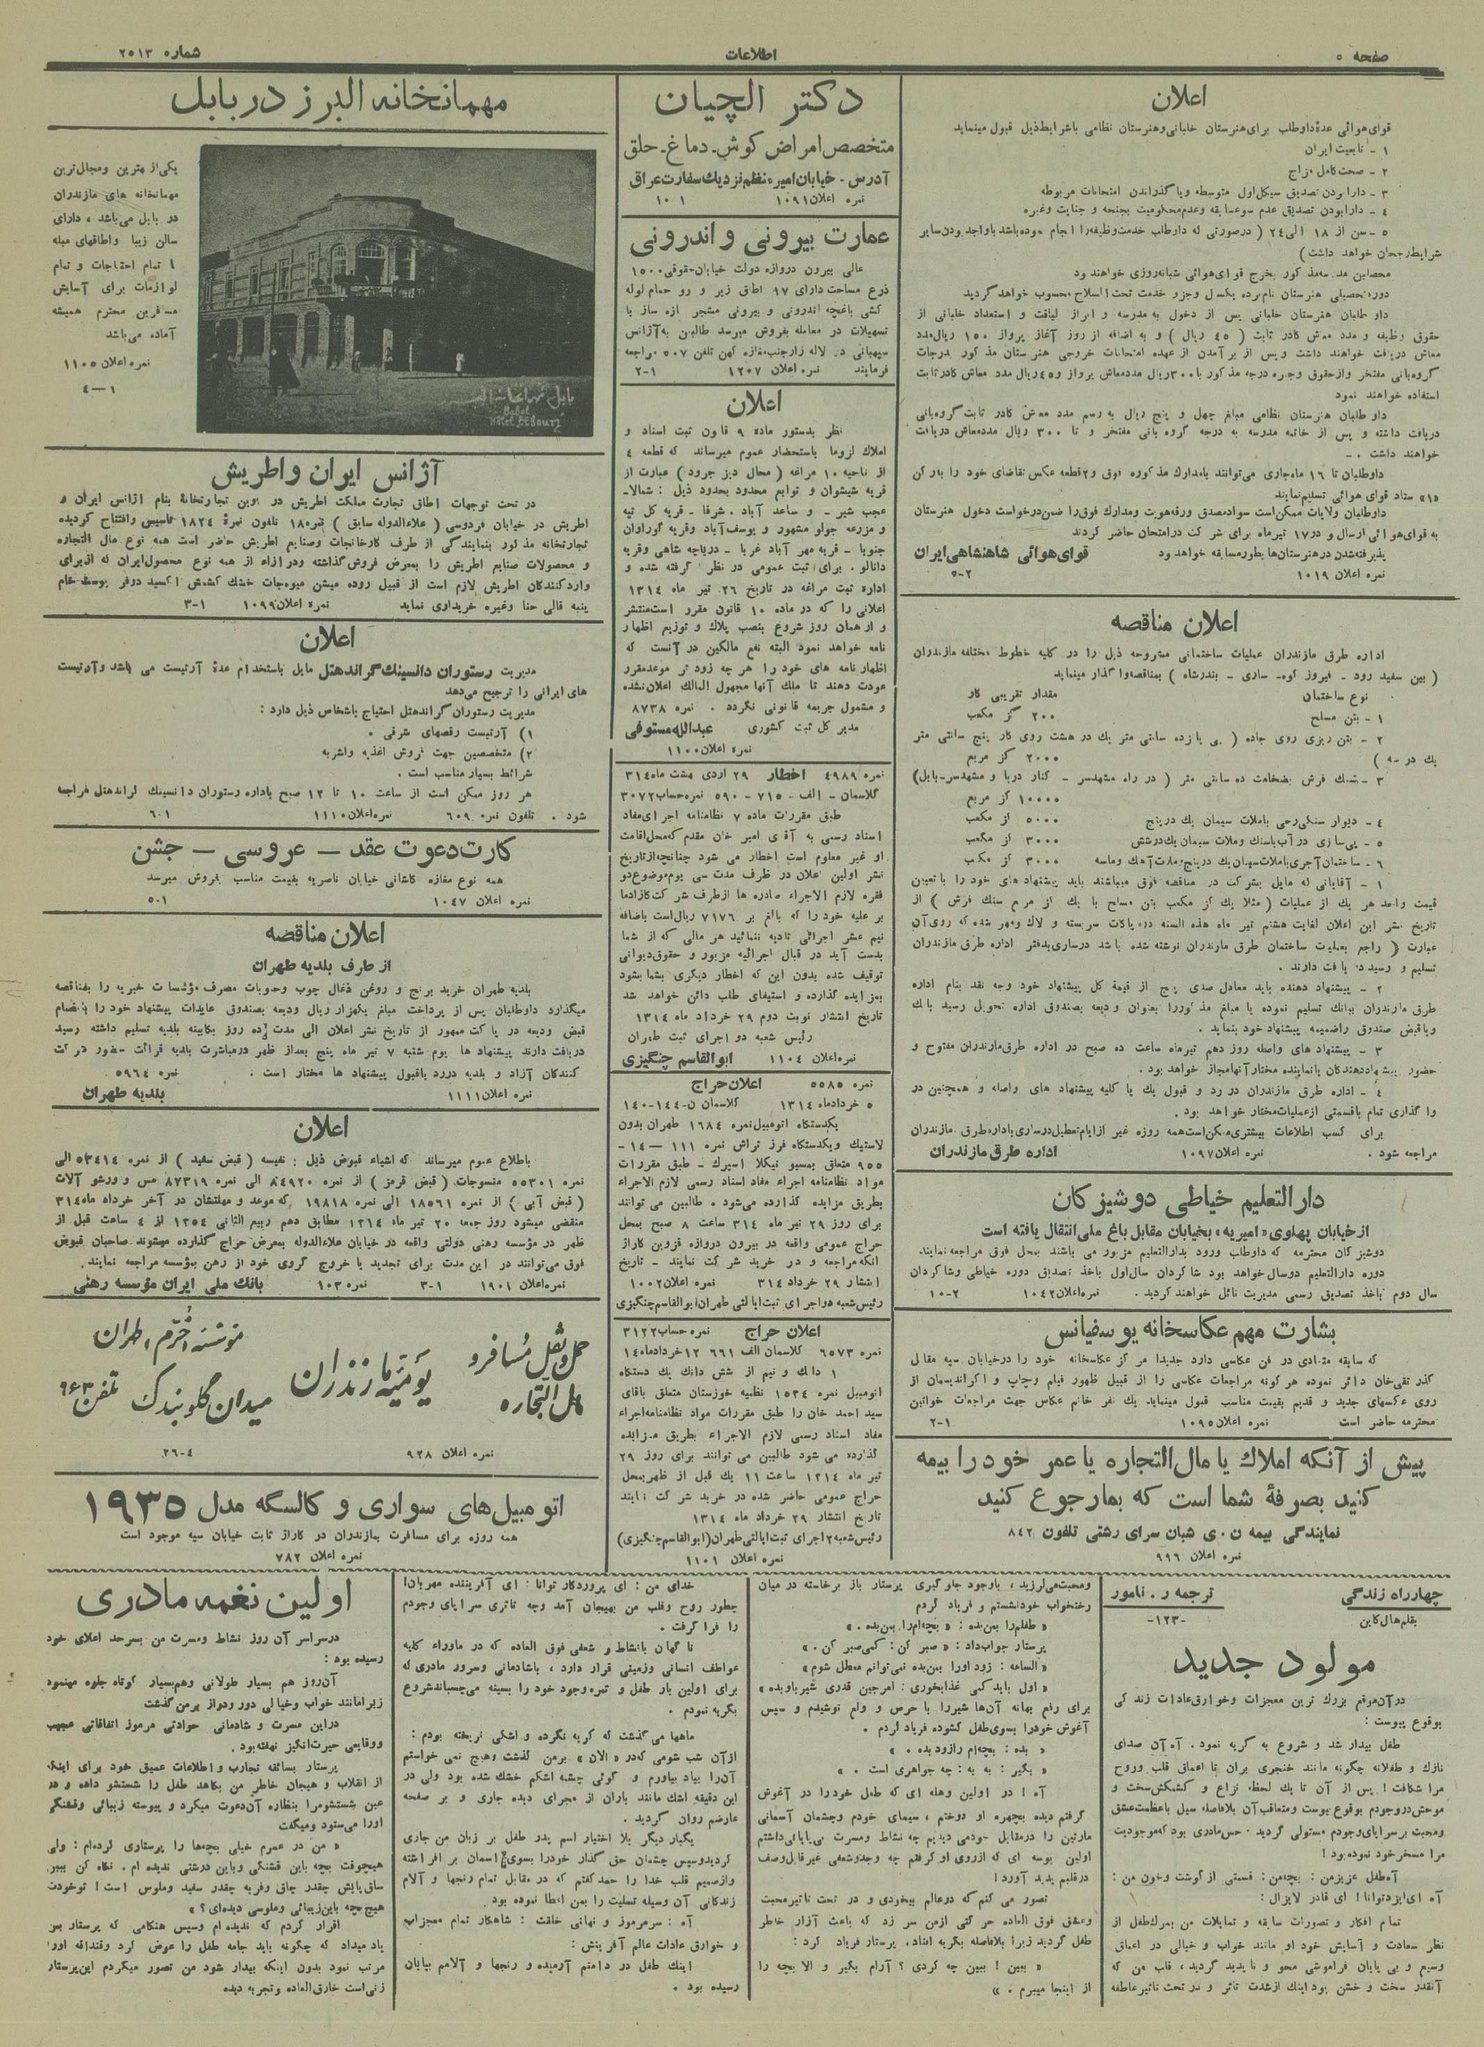 صفحه ۵
اطلاعات
شماره ۲۵۱۳
اعلان
قوای هوائی عدۀ داوطلب برای هنرستان خلبانی و هنرستان نظامی با شرایط ذیل قبول مینماید
۱ - تابعیت ایران
۲ - صحت کامل مزاج
۳ - دارا بودن تصدیق سیکل اول متوسطه و یا گذراندن امتحانات مربوطه
۴ - دارا بودن تصدیق عدم سوء سابقه و عدم محکومیت بجنحه و جنایت و غیره
۵ - سن از ۱۸ الی ۲۴ ( در صورتی که داوطلب خدمت وظیفه را انجام نموده باشد با واجد بودن سایر
شرایط رجحان خواهد داشت )
محصلین مدرسه مذکور بخرج قوای هوائی شبانه روزی خواهند بود
دوره تحصیلی هنرستان نامبرده یکسال و جزو خدمت تحت السلاح محسوب خواهد گردید
داوطلبان هنرستان خلبانی پس از دخول به مدرسه و ابراز لیاقت و استعداد خلبانی از
حقوق وظیفه و مدد معاش کادر ثابت ( ۴۵ ریال ) و به اضافه از روز آغاز پرواز ۱۵۰ ریال مدد
معاش دریافت خواهند داشت و پس از بر آمدن از عهده امتحانات خروجی هنرستان مذکور بدرجات
گروهبانی مفتخر و از حقوق و جیره درجه مذکور با ۳۰۰ ریال مدد معاش پرواز و ۴۵ ریال مدد معاش کادر ثابت
استفاده خواهند نمود
داوطلبان هنرستان نظامی مبلغ چهل و پنج ریال به رسم مدد معاش کادر ثابت گروهبانی
دریافت داشته و پس از خاتمه مدرسه به درجه گروه بانی مفتخر و تا ۳۰۰ ریال مدد معاش دریافت
خواهند داشت . -
داوطلبان تا ۱۶ ماه جاری می‌توانند با مدارک مذکوره فوق و ۲ قطعه عکس تقاضای خود را به رکن
«۱» ستاد قوای هوائی تسلیم نمایند
داوطلبان ولایات ممکن است سواد مصدق ورقه هویت و مدارک فوق را ضمن درخواست دخول هنرستان
به قوای هوائی ارسال و در ۱۷ تیر ماه برای شرکت در امتحان حاضر گردند
پذیرفته شدن در هنرستان ها بطور مسابقه خواهد بود
قوای هوائی شاهنشاهی ایران
نمره اعلان ۱۰۱۹
۵-۲
اعلان مناقصه
اداره طرق مازندران عملیات ساختمانی مشروحه ذیل را در کلیه خطوط مختلفه مازندران
( بین سفید رود - فیروز کوه - ساری - بندرشاه ) بمناقصه واگذار مینماید
نوع ساختمان
مقدار تقریبی کار
۱ - بتن مسلح
۲۰۰ گز مکعب
۲ - بتن ریزی روی جاده ( پی یازده سانتی متر یك در هشت روی کار پنج سانتی متر
یك در سه )
۲۰۰۰ گز مربع
۳ - سنگ فرش بضخامت ده سانتی متر ( در راه مشهدسر - کنار دریا و مشهدسر - بابل )
۱۰۰۰۰ گز مربع
۴ - دیوار سنگی رجی با ملات سیمان یك در پنج
۵۰۰۰ گز مکعب
۵ - پی سازی در آب با سنگ و ملات سیمان یك در شش
۳۰۰۰ گز مکعب
۶ - ساختمان آجری با ملات سیمان یك در پنج و ملات آهك و ماسه
۳۰۰۰ گز مکعب
۱ - آقایانی که مایل بشرکت در مناقصه فوق میباشند باید پیشنهاد های خود را با تعیین
قیمت واحد هر یك از عملیات ( مثلا یك گز مکعب بتن مسلح یا یك گز مربع سنگ فرش ) از
تاریخ نشر این اعلان لغایت هشتم تیر ماه هذه السنه در پاکات سربسته و لاك و مهر شده که روی آن
عبارت ( راجع بعملیات ساختمان طرق مازندران نوشته شده باشد در ساری بدفتر اداره طرق مازندران
تسلیم و رسید دریافت دارند .
۲ - پیشنهاد دهنده باید معادل صدی پنج از قیمة کل پیشنهاد خود وجه نقد بنام اداره
طرق مازندران ببانك تسلیم نموده یا مبلغ مذکور را بعنوان ودیعه بصندوق اداره تحویل رسید بانك
و یا قبض صندوق را ضمیمه پیشنهاد خود بنماید .
۳ - پیشنهاد های واصله روز دهم تیرماه ساعت ده صبح در اداره طرق مازندران مفتوح و
حضور پیشنهاد دهندگان یا نماینده مختار آنها مجاز خواهد بود .
۴ - اداره طرق مازندران در رد و قبول یك یا کلیه پیشنهاد های واصله و همچنین در
واگذاری تمام یا قسمتی از عملیات مختار خواهد بود .
برای کسب اطلاعات بیشتری ممکن است همه روزه غیر از ایام تعطیل در ساری باداره طرق مازندران
مراجعه شود .
نمره اعلان ۱۰۹۷
اداره طرق مازندران
دارالتعلیم خیاطی دوشیزگان
از خیابان پهلوی «امیریه» بخیابان مقابل باغ ملی انتقال یافته است
دوشیزگان محترمه که داوطلب ورود بدارالتعلیم مزبور می باشند بمحل فوق مراجعه نمایند.
دوره دارالتعلیم دو سال خواهد بود شاگردان سال اول باخذ تصدیق دوره خیاطی و شاگردان
سال دوم باخذ تصدیق رسمی مدیریت نائل خواهند گردید .
نمره اعلان ۱۰۴۲
۱۰-۲
بشارت مهم عکاسخانه یوسفیانس
که سابقه متمادی در فن عکاسی دارد جدیدا مرکز عکاسخانه خود را در خیابان سپه مقابل
گذر تقی خان دائر نموده هر گونه مراجعات عکاسی را از قبیل ظهور فیلم و چاپ و اگراندیسمان از
روی عکسهای جدید و قدیم بقیمت مناسب قبول مینماید یك نفر خانم عکاس جهت مراجعات خوانین
محترمه حاضر است
نمره اعلان ۱۰۹۵
۲-۱
پیش از آنکه املاك یا مال التجاره یا عمر خود را بیمه
کنید بصرفۀ شما است که بما رجوع کنید
نمایندگی بیمه ن . ی شبان سرای رشتی تلفون ۸۴۲
نمره اعلان ۹۹۶
دکتر الچیان
متخصص امراض گوش - دماغ - حلق
آدرس - خیابان امیر منظم نزدیك سفارت عراق
نمره اعلان ۱۰۹۱
۱۰-۱
عمارت بیرونی و اندرونی
عالی بیرون دروازه دولت خیابان حقوقی ۱۵۰۰
ذرع مساحت دارای ۹۷ اطاق زیر و رو حمام لوله
کشی باغچه اندرونی و بیرونی مشجر تازه ساز با
تسهیلات در معامله بفروش میرسد طالبین به آژانس
سپهبانی در لاله زار جنب مغازه کهن تلفن ۵۰۷ مراجعه
فرمایند
نمره اعلان ۱۲۰۷
۲-۱
اعلان
نظر بدستور ماده ۹ قانون ثبت اسناد و
املاك لزوما باستحضار عموم میرساند که قطعه ۴
از ناحیه ۱۰ مراغه ( محال دیز جرود ) عبارت از
قریه شیشوان و توابع محدود بحدود ذیل : شمالا -
عجب شیر - و ساعد آباد . شرقا - قریه کل تپه
و مزرعه جولو مشهور و یوسف آباد و قریه گوراوان
جنوبا - قریه مهر آباد غربا - دریاچه شاهی و قریه
دانالو . برای ثبت عمومی در نظر گرفته شده و
اداره ثبت مراغه در تاریخ ۲۶ تیر ماه ۱۳۱۴
اعلانی را که در ماده ۱۰ قانون مقرر است منتشر
و از همان روز شروع بنصب پلاك و توزیع اظهار
نامه خواهد نمود البته نفع مالکین در آنست که
اظهار نامه های خود را هر چه زود تر موعد مقرر
عودت دهند تا ملك آنها مجهول المالك اعلان نشده
و مشمول جریمه قانونی نگردد . نمره ۸۷۳۸
مدیر کل ثبت کشوری
عبدالله مستوفی
نمره اعلان ۱۱۰۰
نمره ۴۹۸۹ اخطار ۲۹ اردی بهشت ماه ۳۱۴
کلاسمان - الف - ۷۱۵ - ۵۹۰ نمره حساب ۳۰۷۲
طبق مقررات ماده ۷ نظامنامه اجرای مفاد
اسناد رسمی به آقای امیر خان مقدم که محل اقامت
او غیر معلوم است اخطار می شود چنانچه از تاریخ
نشر اولین اعلان در ظرف مدت سی یوم موضوع دو
فقره لازم الاجراء صادره ها از طرف شرکت کازادما
بر علیه خود را که بالغ بر ۷۱۷۶ ریال است باضافه
نیم عشر اجرائی تادیه ننمائید هر مالی که از شما
بدست آید در قبال اجرائیه مزبور و حقوق دیوانی
توقیف شده بدون این که اخطار دیگری بشما بشود
بمزایده گذارده و استیفای طلب دائن خواهد شد
تاریخ انتشار نوبت دوم ۲۹ خرداد ماه ۱۳۱۴
رئیس شعبه دو اجرای ثبت طهران
نمره اعلان ۱۱۰۴
ابوالقاسم چنگیزی
نمره ۵۵۸۵
اعلان حراج
۵ خرداد ماه ۱۳۱۴
کلاسمان ن-۱۴۴-۱۴۰
یکدستگاه اتومبیل نمره ۱۶۸۴ طهران بدون
لاستیك و یکدستگاه فرز تراش نمره ۱۱۱ - ۱۴ -
۹۵۵ متعلق بمسیو نیکلا اسپرك - طبق مقررات
مواد نظامنامه اجراء مفاد اسناد رسمی لازم الاجراء
بطریق مزایده گذارده می‌شود . طالبین می توانند
برای روز ۲۹ تیر ماه ۳۱۴ ساعت ۸ صبح بمحل
حراج عمومی واقعه در بیرون دروازه قزوین گاراژ
آنکه مراجعه و در خرید شرکت نمایند - تاریخ
انتشار ۲۹ خرداد ۳۱۴
نمره اعلان ۱۰۰۲
رئیس شعبه دو اجرای ثبت ایالتی طهران ابوالقاسم چنگیزی
اعلان حراج
نمره حساب ۳۱۲۲
نمره ۶۵۷۳ کلاسمان الف ۶۶۱ ۱۲ خرداد ماه ۱۴
۱ دانك و نیم از شش دانك یك دستگاه
اتومبیل نمره ۱۵۳۴ نظمیه خوزستان متعلق باقای
سید احمد خان را طبق مقررات مواد نظامنامه اجراء
مفاد اسناد رسمی لازم الاجراء بطریق مزایده
گذارده می شود طالبین می توانند برای روز ۲۹
تیر ماه ۱۳۱۴ ساعت ۱۱ یك قبل از ظهر بمحل
حراج عمومی حاضر شده در خرید شرکت نمایند
تاریخ انتشار ۲۹ خرداد ماه ۱۳۱۴
رئیس شعبه ۲ اجرای ثبت ایالتی طهران (ابوالقاسم چنگیزی)
نمره اعلان ۱۱۰۱
مهمانخانه البرز در بابل
یکی از بهترین و مجلل ترین
مهمانخانه های مازندران
در بابل می باشد ، دارای
سالن زیبا و اطاقهای مبله
با تمام احتیاجات و تمام
لوازمات برای آسایش
مسافرین محترم همیشه
آماده می‌باشد
نمره اعلان ۱۱۰۵
۴-۱
بابل مهمانخانه البرز
Babol
Hotel Elbourz
آژانس ایران و اطریش
در تحت توجهات اطاق تجارت مملکت اطریش در وین تجارتخانۀ بنام آژانس ایران و
اطریش در خیابان فردوسی ( علاءالدوله سابق ) نمره ۱۸۰ تلفون نمرۀ ۱۸۲۴ تأسیس و افتتاح گردیده
تجارتخانه مذکور بنمایندگی از طرف کارخانجات و صنایع اطریش حاضر است همه نوع مال التجاره
و محصولات صنایع اطریش را بمعرض فروش گذاشته و در ازاء از همه نوع محصول ایران که از برای
وارد کنندگان اطریش لازم است از قبیل روده میشن میوجات خشك کشمش اکسید دوفر پوست خام
پنبه قالی حنا و غیره خریداری نماید
نمره اعلان ۱۰۹۹
۳-۱
اعلان
مدیریت رستوران دانسینك گراند هتل مایل باستخدام عدۀ آرتیست می باشد و آرتیست
های ایرانی را ترجیح می‌دهد
مدیریت رستوران گراندهتل احتیاج باشخاص ذیل دارد :
۱) آرتیست رقصهای شرقی .
۲) متخصصین جهت فروش اغذیه و اشربه
شرائط بسیار مناسب است .
هر روز ممکن است از ساعت ۱۰ تا ۱۲ صبح باداره رستوران دانسینك گراندهتل مراجعه
شود .
تلفون نمره ۶۰۹
نمره اعلان ۱۱۱۰
۶-۱
کارت دعوت عقد - عروسی - جشن
همه نوع مغازه کاشانی خیابان ناصریه بقیمت مناسب بفروش میرسد
نمره اعلان ۱۰۴۷
۵-۱
اعلان مناقصه
از طرف بلدیه طهران
بلدیه طهران خرید برنج و روغن ذغال چوب و حبوبات مصرف مؤسسات خیریه را بمناقصه
میگذارد داوطلبان پس از پرداخت مبلغ یکهزار ریال ودیعه بصندوق عایدات پیشنهاد خود را بانضمام
قبض ودیعه در پاکت ممهور از تاریخ نشر اعلان الی مدت ده روز بکابینه بلدیه تسلیم داشته رسید
دریافت دارند پیشنهاد ها یوم شنبه ۷ تیر ماه پنج بعد از ظهر در مباشرت بلدیه قرائت حضور شرکت
کنندگان آزاد و بلدیه در رد یا قبول پیشنهاد ها مختار است .
نمره ۵۹۶۴
نمره اعلان ۱۱۱۱
بلدیه طهران
اعلان
باطلاع عموم میرساند که اشیاء قبوض ذیل : نفیسه ( قبض سفید ) از نمره ۵۳۴۱۴ الی
نمره ۵۵۳۰۱ منسوجات ( قبض قرمز ) از نمره ۸۴۹۲۰ الی نمره ۸۷۳۱۹ مس و ورشو آلات
( قبض آبی ) از نمره ۱۸۵۶۱ الی نمره ۱۹۸۱۸ که موعد و مهلتشان در آخر خرداد ماه ۳۱۴
منقضی میشود روز جمعه ۲۰ تیر ماه ۱۳۱۴ مطابق دهم ربیع الثانی ۱۳۵۴ از ۴ ساعت قبل از
ظهر در مؤسسه رهنی دولتی واقعه در خیابان علاءالدوله بمعرض حراج گذارده میشوند صاحبان قبوض
فوق می‌توانند در این مدت برای تجدید یا خروج گروی خود از رهن بمؤسسه مراجعه نمایند .
نمره اعلان ۱۹۰۱
۳-۱
نمره ۱۰۳
بانك ملی ایران مؤسسه رهنی
حمل و نقل مسافر و
مال التجاره
یومیه مازندران
مؤسسه محترم ، طهران
میدان گلوبندك تلفن ۹۶۳
نمره اعلان ۹۲۸
۲۶-۴
اتومبیل‌های سواری و کالسگه مدل ۱۹۳۵
همه روزه برای مسافرت بمازندران در گاراژ ثابت خیابان سپه موجود است
نمره اعلان ۷۸۲
چهارراه زندگی
بقلم هال کاین
ترجمه ر . نامور
-۱۲۳-
مولود جدید
در آن موقع بزرك ترین معجزات و خوارق عادات زندگی
بوقوع پیوست :
طفل بیدار شد و شروع به گریه نمود . آه آن صدای
نازك و طفلانه چگونه مانند خنجری بران تا اعماق قلب و روح
مرا شکافت ! پس از آن تا یك لحظه نزاع و کشمکش سخت و
موحش در وجودم بوقوع پیوست و متعاقب آن بلافاصله سیل با عظمت عشق
و محبت بر سراپای وجودم مستولی گردید . حس مادری بود که موجودیت
مرا مسخر خود نموده بود !
آه طفل عزیز من : بچه من : قسمتی از گوشت و خون من :
آه ای ایزد توانا ! ای قادر لایزال :
تمام افکار و تصورات سابقه و تمایلات من بمرك طفل از
نظر سعادت و آسایش خود او مانند خواب و خیالی در اعماق
وسیع و بی پایان فراموشی محو و ناپدید گردید ، قلب من که
آنقدر سخت و خشن بود اینك از شدت تاثر و در تحت تاثیر عاطفه
و محبت می‌لرزید ، با وجود جلوگیری پرستار باز برخاسته در میان
رختخواب خود نشستم و فریاد کردم
« طفلم را بمن بده : « بچه‌ام را بمن بده . »
پرستار جواب داد : « صبر کن : کمی صبر کن . »
« الساعه : زود او را بمن بده نمی توانم معطل شوم »
« اول باید کمی غذا بخوری : امر جین قدری شیر باو بده »
برای رفع بهانه آن‌ها شیر را با حرص و ولع نوشیدم و سپس
آغوش خود را بسوی طفل گشوده فریاد کردم .
« بده : بچه‌ام را زود بده . »
« بگیر : به به : چه جواهری است . »
آه ! در اولین وهله ای که طفل خود را در آغوش
گرفتم دیده بچهره او دوختم ، سیمای خودم و چشمان آسمانی
مارتین را در مقابل خود می دیدم چه نشاط و مسرت بی پایانی داشتم
اولین بوسه ای که از روی او گرفتم چه وجد و شعفی غیر قابل وصف
در قلبم پدید آورد !
تصور می کنم که در عالم بیخودی و در تحت تاثیر محبت
و عشق فوق العاده حرکتی از من سر زد که باعث آزار خاطر
طفل گردید زیرا بلافاصله بگریه افتاد ، پرستار فریاد کرد :
« ببین ! ببین چه کردی ؟ آرام بگیر و الا بچه را
از اینجا میبرم . »
خدای من : ای پروردگار توانا : ای آفریننده مهربان !
چطور روح و قلب من بهیجان آمد و چه تاثری سراپای وجودم
را فرا گرفت .
ناگهان با نشاط و شعفی فوق العاده که در ماوراء کلیه
عواطف انسانی و زمینی قرار دارد ، با شادمانی و سرور مادری که
برای اولین بار طفل و ثمره وجود خود را بسینه می‌چسباند شروع
بگریه نمودم .
ماهها می گذشت که گریه نکرده و اشکی نریخته بودم :
از آن شب شومی که در « الان » بر من گذشت و هیچ نمی خواستم
آن را بیاد بیاورم و گوئی چشمه اشکم خشك شده بود ولی در
این دقیقه اشك مانند باران از مجرای دیده جاری و بر صفحه
عارضم روان گردید .
یکبار دیگر بلا اختیار اسم پدر طفل بر زبان من جاری
گردید و سپس چشمان حق گذار خود را بسوی آسمان بر افراشته
و از صمیم قلب خدا را حمد گفتم که در مقابل تمام رنجها و آلام
زندگانی آن وسیله تسلیت را بمن اعطا نموده بود .
آه : سر مرموز و نهانی خلقت : شاهکار تمام معجزات
و خوارق عادات عالم آفرینش :
اینك طفل در دامنم آرمیده و رنجها و آلامم بپایان
رسیده بود .
اولین نغمه مادری
در سراسر آن روز نشاط و مسرت من بسر حد اعلای خود
رسیده بود :
آن روز هم بسیار طولانی و هم بسیار کوتاه جلوه مینمود
زیرا مانند خواب و خیالی دور و دراز بر من گذشت
در این مسرت و شادمانی حوادثی مرموز اتفاقاتی عجیب
و وقایعی حیرت انگیز نهفته بود .
پرستار بسائقه تجارب و اطلاعات عمیق خود برای اینکه
از انقلاب و هیجان خاطر من بکاهد طفل را شستشو داده و در
عین شستشو مرا بنظاره آن دعوت میکرد و پیوسته زیبائی و قشنگی
او را می‌ستود و میگفت
« من در عمرم خیلی بچه‌ها را پرستاری کرده‌ام : ولی
هیچوقت بچه باین قشنگی و باین درشتی ندیده ام . نگاه کن ببین
ساق پایش چقدر چاق و فربه چقدر سفید و ملوس است ! تو خودت
هیچ بچه باین زیبائی و ملوسی دیده‌ای ؟ »
اقرار کردم که ندیده‌ام و سپس هنگامی که پرستار بمن
یاد میداد که چگونه باید جامه طفل را عوض کرد و قنداقه او را
مرتب نمود بدون اینکه بیدار شود من تصور میکردم این پرستار
زنی است خارق العاده و تجربه دیده